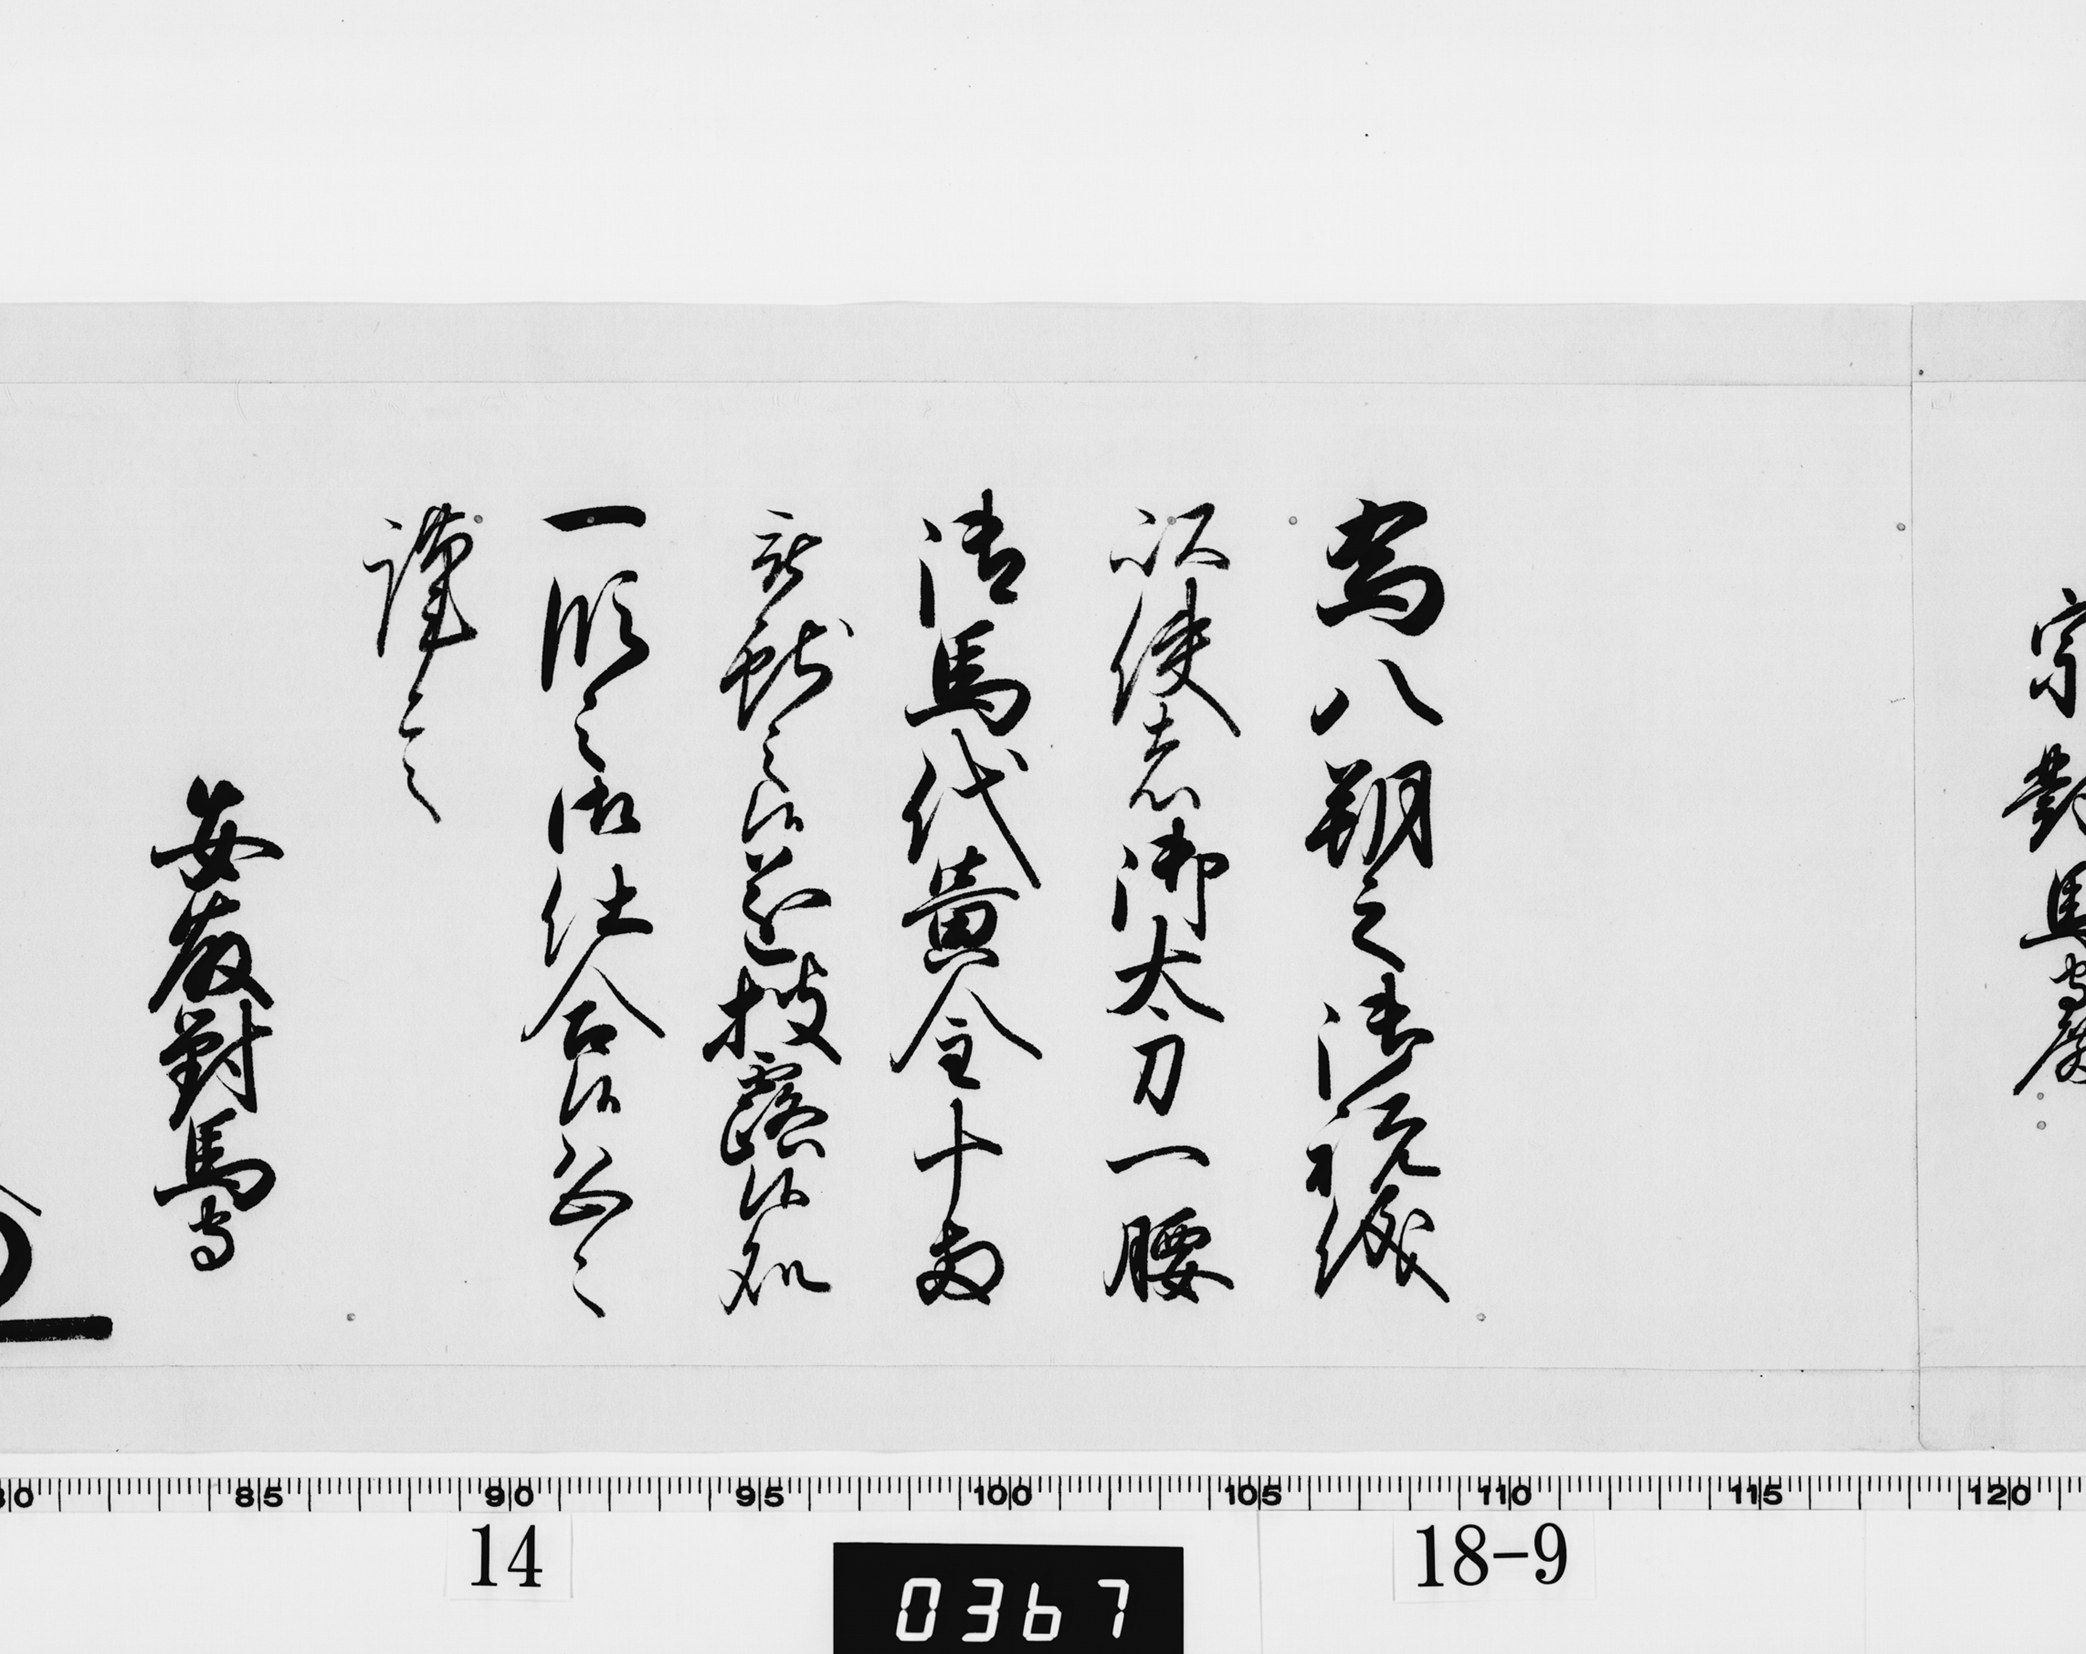 宗對馬守殿
為八朔之御祝儀
以使者御太刀一腰
御馬代黄金十両
被献之候遂披露候処
一段之御仕合候恐々
謹言
安藤對馬守
80 85 90 95 100 105 110 115 120
14 0367 18-9